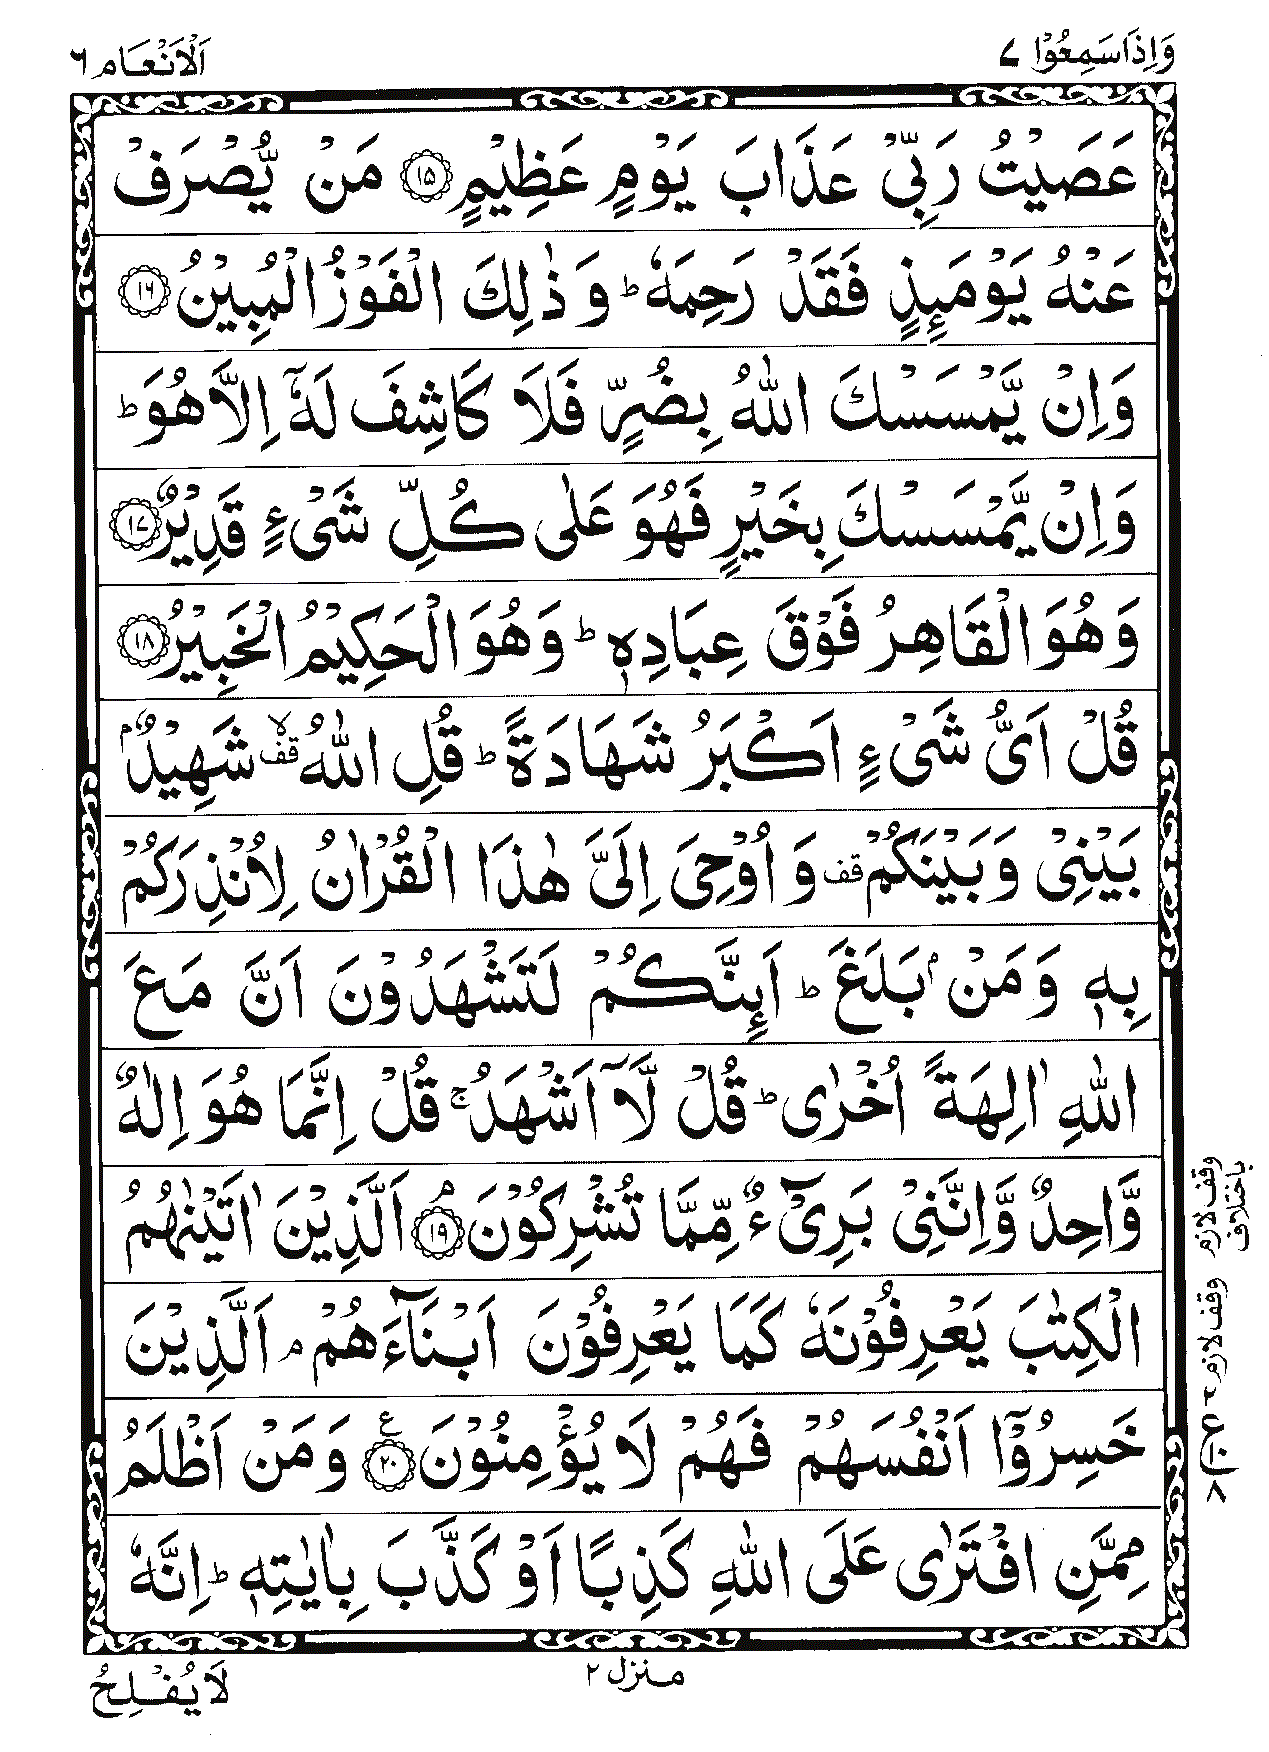 وَاِذَاسَمِعُوْا ٧
اَلْاَنْعَام ٦
عَصَيْتُ رَبِّيْ عَذَابَ يَوْمٍ عَظِيْمٍ ۝١٥ مَنْ يُّصْرَفْ
عَنْهُ يَوْمَئِذٍ فَقَدْ رَحِمَهٗ ؕ وَ ذٰلِكَ الْفَوْزُ الْمُبِيْنُ ۝١٦
وَاِنْ يَّمْسَسْكَ اللّٰهُ بِضُرٍّ فَلَا كَاشِفَ لَهٗۤ اِلَّا هُوَ ؕ
وَاِنْ يَّمْسَسْكَ بِخَيْرٍ فَهُوَ عَلٰى كُلِّ شَىْءٍ قَدِيْرٌ ۝١٧
وَهُوَ الْقَاهِرُ فَوْقَ عِبَادِهٖ ؕ وَهُوَ الْحَكِيْمُ الْخَبِيْرُ ۝١٨
قُلْ اَىُّ شَىْءٍ اَكْبَرُ شَهَادَةً ؕ قُلِ اللّٰهُ ۙقف شَهِيْدٌۢ
بَيْنِىْ وَبَيْنَكُمْ قف وَ اُوْحِىَ اِلَىَّ هٰذَا الْقُرْاٰنُ لِاُنْذِرَكُمْ
بِهٖ وَمَنْۢ بَلَغَ ؕ اَئِنَّكُمْ لَتَشْهَدُوْنَ اَنَّ مَعَ
اللّٰهِ اٰلِهَةً اُخْرٰى ؕ قُلْ لَّاۤ اَشْهَدُ ۚ قُلْ اِنَّمَا هُوَ اِلٰهٌ
وَّاحِدٌ وَّاِنَّنِىْ بَرِىْٓءٌ مِّمَّا تُشْرِكُوْنَ ۘ‏۝١٩ اَلَّذِيْنَ اٰتَيْنٰهُمُ
الْكِتٰبَ يَعْرِفُوْنَهٗ كَمَا يَعْرِفُوْنَ اَبْنَآءَهُمْ ۘ اَلَّذِيْنَ
خَسِرُوْۤا اَنْفُسَهُمْ فَهُمْ لَا يُؤْمِنُوْنَ ۝٢٠ ع وَمَنْ اَظْلَمُ
مِمَّنِ افْتَرٰى عَلَى اللّٰهِ كَذِبًا اَوْ كَذَّبَ بِاٰيٰتِهٖ ؕ اِنَّهٗ
وقف لازم
باختلاف
وقف لازم
٢
ع
١٠
٨
منزل ٢
لَا يُفْلِحُ